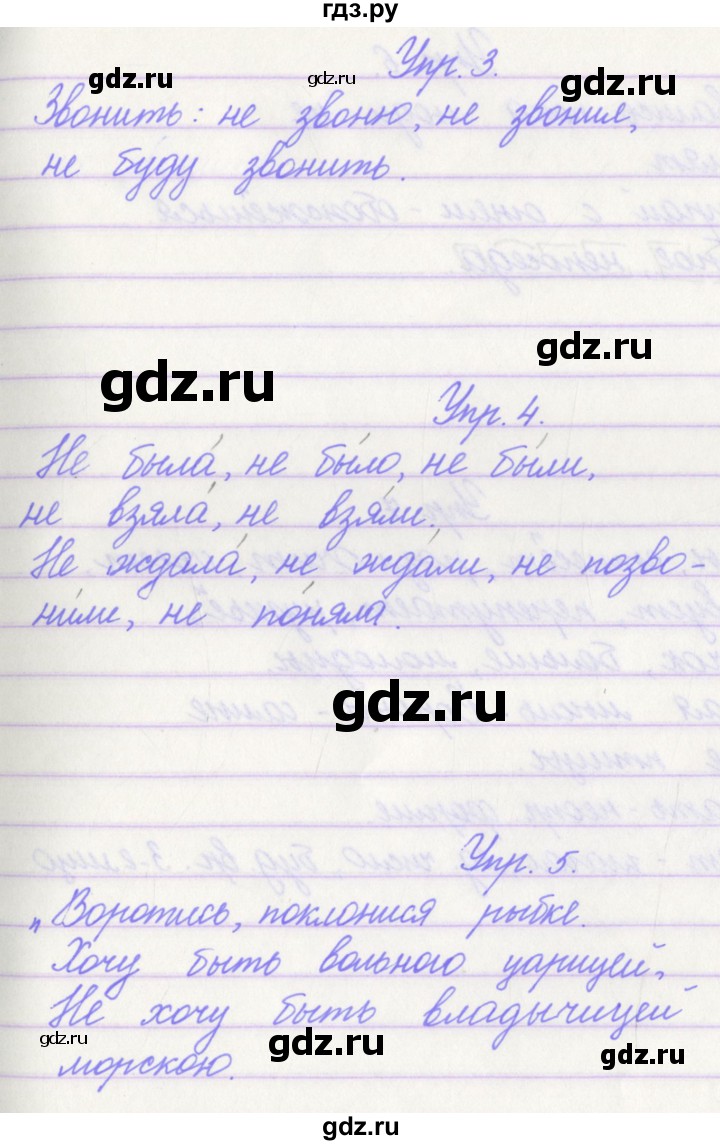 гдз.ру
Упр. 3.
gdz.ru
gdz.ru
gdz.ru
Звонить: не звоню, не звонил,
не буду звонить.
gdz.ru
gdz.ru
Упр. 4.
Не была́, не бы́ло, не бы́ли,
не взяла́, не взя́ли.
Не ждала́, не жда́ли, не позво-
ни́ли, не по́няла.
gdz.ru
Упр. 5.
„Воротись, поклонися рыбке.
Хочу быть вольною царицей,
Не хочу быть владычицей
gdz.ru
gdz.ru
gdz.ru
морскою.
gdz.ru